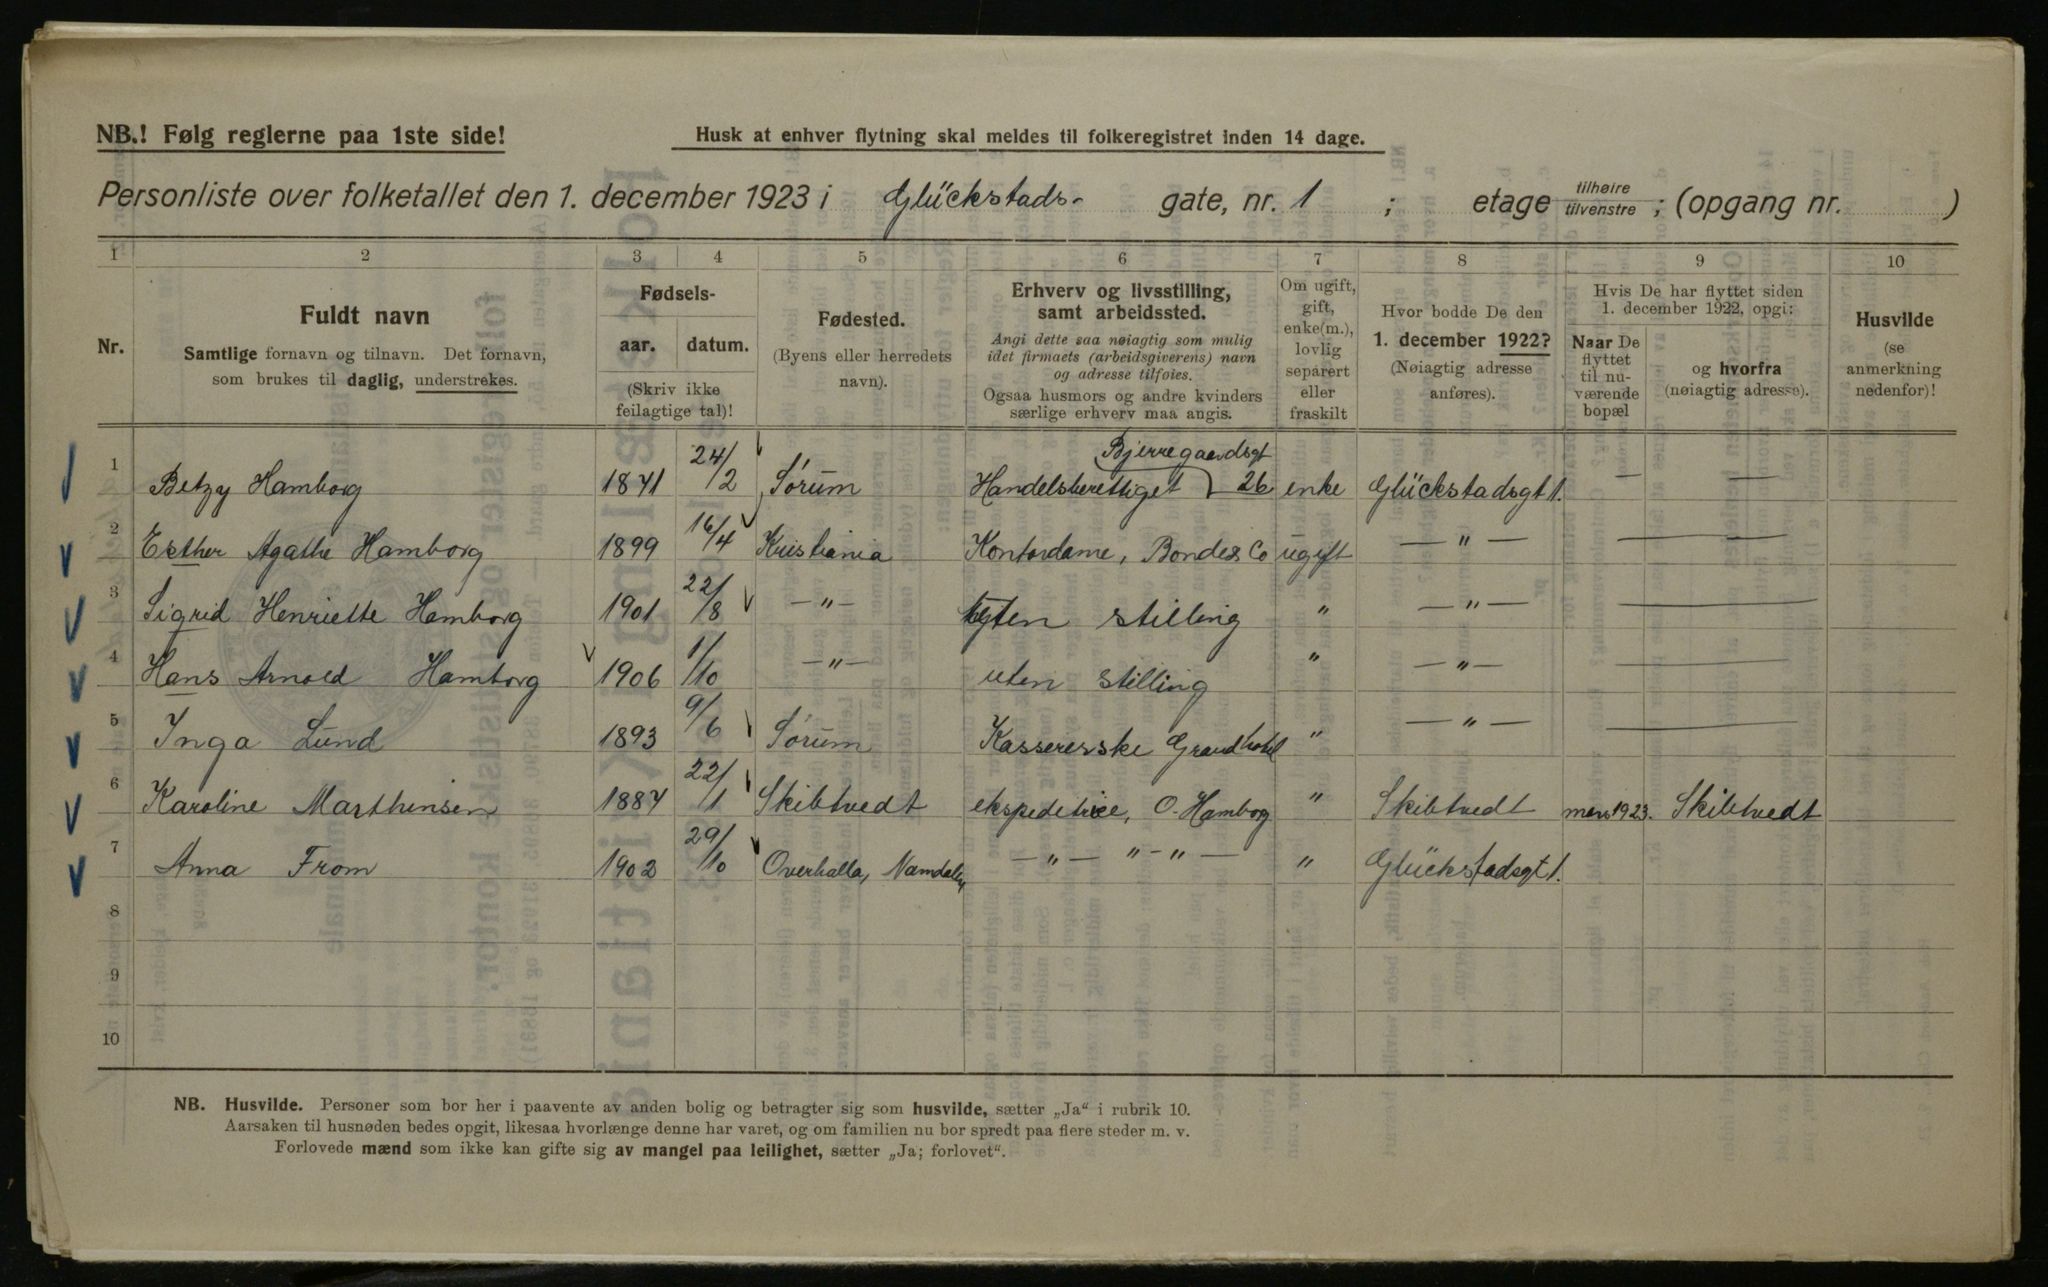 NB.! Følg reglerne paa 1ste side!
Husk at enhver flytning skal meldes til folkeregistret inden 14 dage.
Personliste over folketallet den 1. december 1923 i Glückstads- gate, nr. 1 ; etage tilhøire tilvenstre ; (opgang nr. )
1 2 3 4 5 6 7 8 9 10
Nr.
Fuldt navn
Samtlige fornavn og tilnavn. Det fornavn,
som brukes til daglig, understrekes.
Fødsels-
aar. datum.
(Skriv ikke
feilagtige tal)!
Fødested.
(Byens eller herredets
navn).
Erhverv og livsstilling,
samt arbeidssted.
Angi dette saa nøiagtig som mulig
idet firmaets (arbeidsgiverens) navn
og adresse tilføies.
Ogsaa husmors og andre kvinders
særlige erhverv maa angis.
Om ugift,
gift,
enke(m.),
lovlig
separert
eller
fraskilt
Hvor bodde De den
1. december 1922?
(Nøiagtig adresse
anføres).
Hvis De har flyttet siden
1. december 1922, opgi:
Naar De
flyttet
til nu-
værende
bopæl
og hvorfra
(nøiagtig adresse).
Husvilde
(se
anmerkning
nedenfor)!
Bjerregaardsgt
1 Betzy Hamborg 1871 24/2 Sørum Handelsberettiget 26 enke Glückstadsgt 1. — —
2 Esther Agathe Hamborg 1899 16/4 Kristiania Kontordame, Bondes Co ugift — " — —
3 Sigrid Henriette Hamborg 1901 22/8 — " — uten stilling " — " — —
4 Hans Arnold Hamborg 1906 1/10 — " — uten stilling " — " — —
5 Inga Lund 1893 9/6 Sørum Kassererske Grand hotel " — " — —
6 Karoline Marthinsen 1887 22/1 Skibtvedt ekspeditrice, O. Hamborg " Skibtvedt 1923. Skibtvedt
7 Anna From 1902 29/10 Overhalla, Namdalen — " — " — " — " Glückstadsgt 1.
8
9
10
NB. Husvilde. Personer som bor her i paavente av anden bolig og betragter sig som husvilde, sætter „Ja" i rubrik 10.
Aarsaken til husnøden bedes opgit, likesaa hvorlænge denne har varet, og om familien nu bor spredt paa flere steder m. v.
Forlovede mænd som ikke kan gifte sig av mangel paa leilighet, sætter „Ja; forlovet".